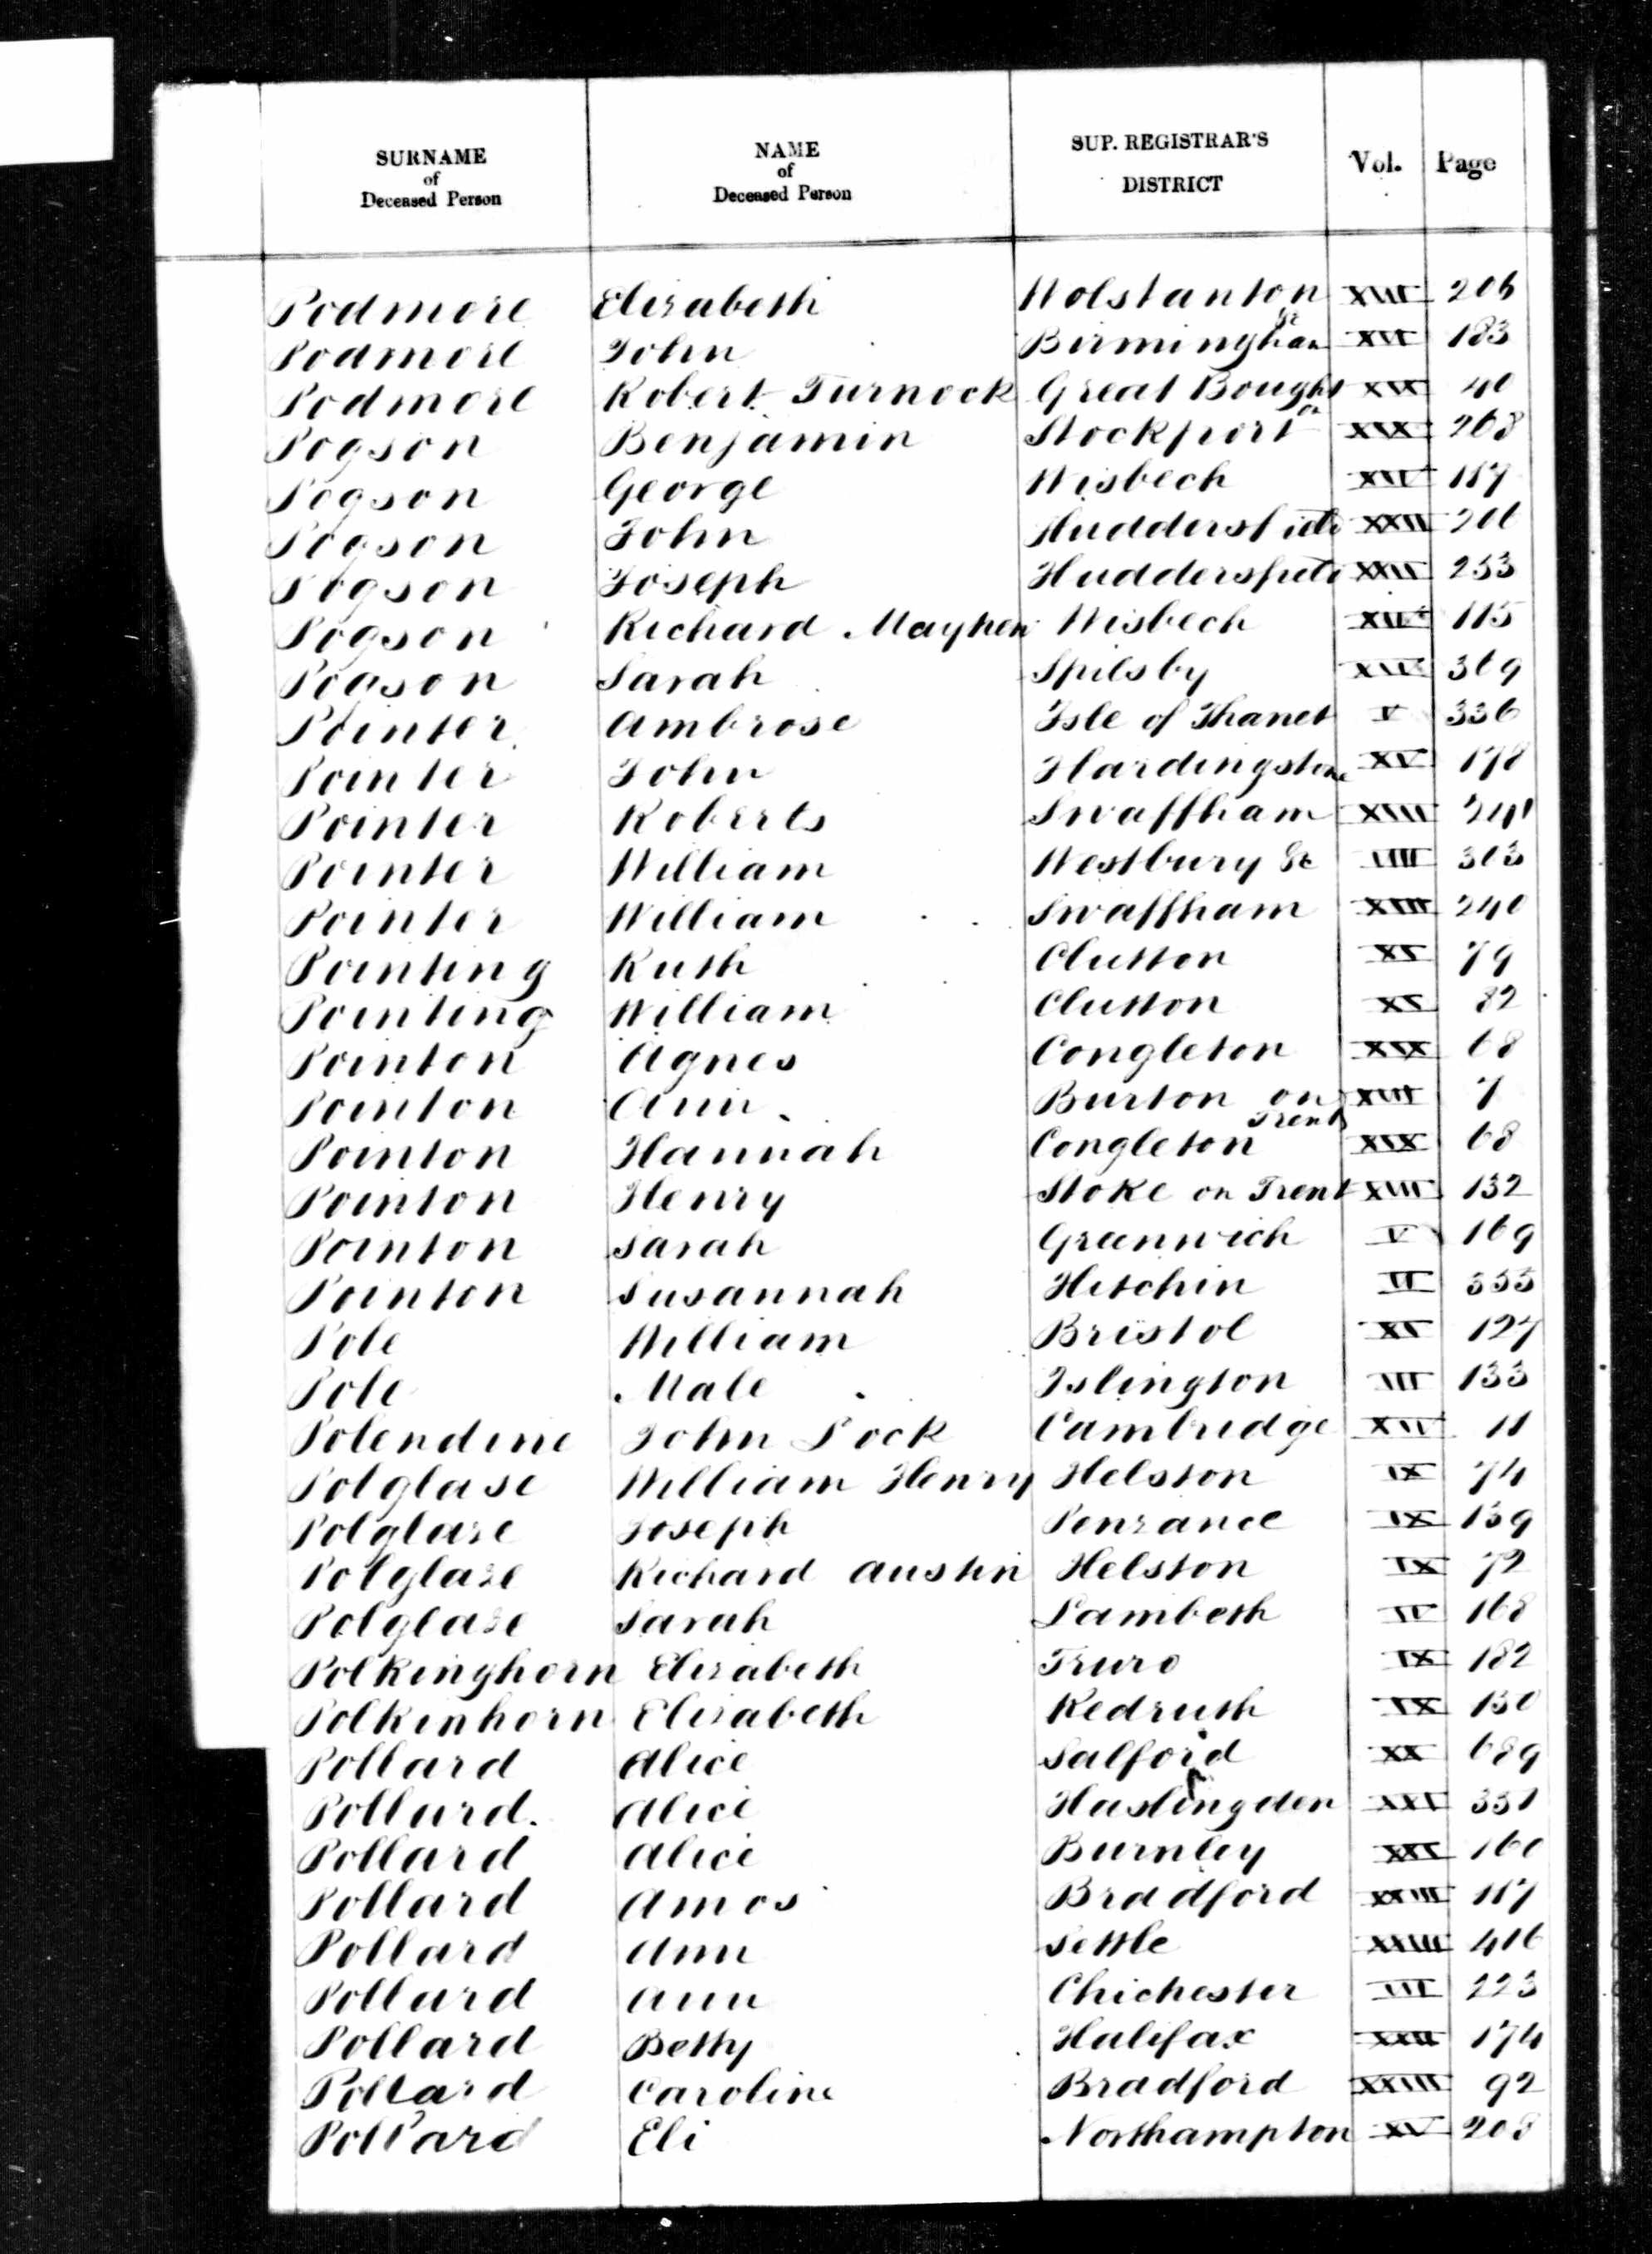 SURNAME of Deceased Person NAME of Deceased Person SUP. REGISTRAR'S DISTRICT Vol. Page
Podmore Elizabeth Wolstanton &c XVII 206
Podmore John Birmingham XVI 183
Podmore Robert Turnock Great Boughton XIX 40
Pogson Benjamin Stockport XIX 268
Pogson George Wisbech XIV 187
Pogson John Huddersfield XXII 206
Pogson Joseph Huddersfield XXII 253
Pogson Richard Mayhew Wisbech XIV 115
Pogson Sarah Spilsby XIV 369
Pointer Ambrose Isle of Thanet V 336
Pointer John Hardingstone XV 178
Pointer Roberts Swaffham XIII 241
Pointer William Westbury &c VIII 303
Pointer William Swaffham XIII 240
Pointing Ruth Clutton XI 79
Pointing William Clutton XI 82
Pointon Agnes Congleton XIX 68
Pointon Ann Burton on Trent XVII 7
Pointon Hannah Congleton XIX 68
Pointon Henry Stoke on Trent XVII 132
Pointon Sarah Greenwich V 169
Pointon Susannah Hitchin VI 555
Pole William Bristol XI 127
Pole Male Islington III 133
Polendine John Lock Cambridge XIV 11
Polglase William Henry Helston IX 74
Polglaze Joseph Penzance IX 159
Polglaze Richard Austin Helston IX 72
Polglaze Sarah Lambeth IV 168
Polkinghorn Elizabeth Truro IX 182
Polkinhorn Elizabeth Redruth IX 150
Pollard Alice Salford XX 689
Pollard. Alice Haslingden XXI 351
Pollard Alice Burnley XXI 160
Pollard Amos Bradford XXIII 187
Pollard Ann Settle XXIII 416
Pollard Ann Chichester VII 223
Pollard Betty Halifax XXII 174
Pollard Caroline Bradford XXIII 92
Pollard Eli Northampton XV 208